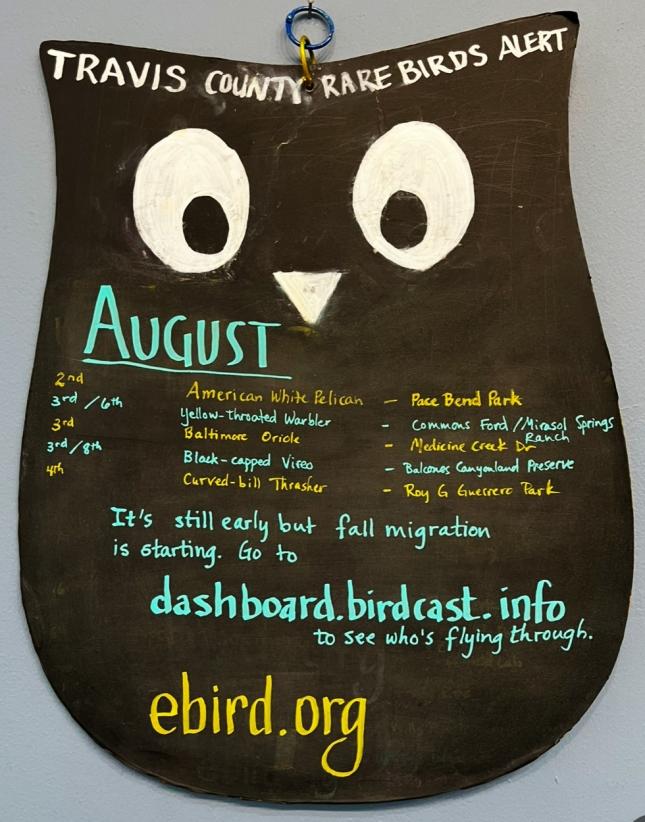 TRAVIS COUNTY RARE BIRDS ALERT
AUGUST
2nd American White Pelican – Pace Bend Park
3rd / 6th Yellow-throated Warbler – Commons Ford / Mirasol Springs Ranch
3rd Baltimore Oriole – Medicine Creek Dr
3rd / 8th Black-capped Vireo – Balcones Canyonland Preserve
4th Curved-bill Thrasher – Roy G Guerrero Park
It's still early but fall migration
is starting. Go to
dashboard.birdcast.info
to see who's flying through.
ebird.org